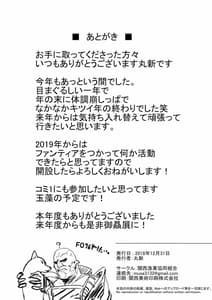 ■ あとがき ■
お手に取ってくださった方々
いつもありがとうございます丸新です
今年もあっという間でした。
目まぐるしい一年で
年の末に体調崩しっぱで
なかなかキツイ年の終わりでした笑
来年からは気持ち入れ替えて頑張って
行きたいと思います。
2019年からは
ファンティアをつかって何か活動
できたらと思ってますので
開設したらよろしくおねがいします!
コミ1にも参加したいと思ってます
玉藻の予定です!
本年度もありがとうございました
来年度からも是非御贔屓に!
発行日:2018年12月31日
発行者:丸新
サークル 関西漁業協同組合
印刷:関西美術印刷株式会社